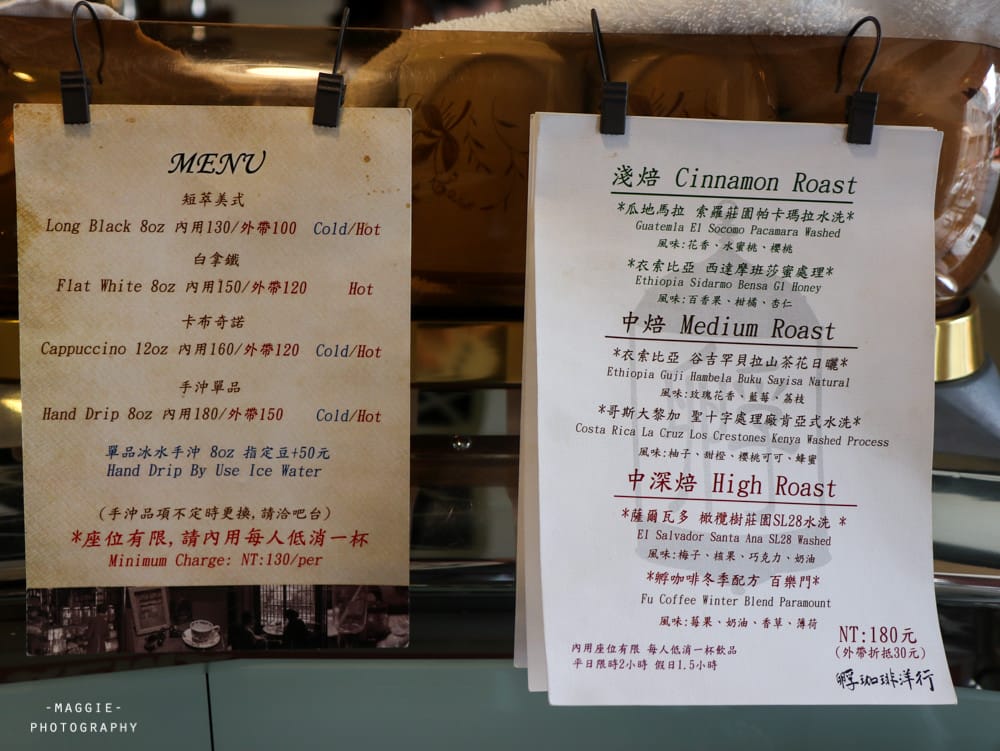 MENU
短萃美式
Long Black 8oz 內用130/外帶100 Cold/Hot
白拿鐵
Flat White 8oz 內用150/外帶120 Hot
卡布奇諾
Cappuccino 12oz 內用160/外帶120 Cold/Hot
手沖單品
Hand Drip 8oz 內用180/外帶150 Cold/Hot
單品冰水手沖 8oz 指定豆+50元
Hand Drip By Use Ice Water
(手沖品項不定時更換,請洽吧台)
*座位有限,請內用每人低消一杯
Minimum Charge: NT:130/per
淺焙 Cinnamon Roast
*瓜地馬拉 索羅莊園帕卡瑪拉水洗*
Guatemla El Socomo Pacamara Washed
風味:花香、水蜜桃、櫻桃
*衣索比亞 西達摩班莎蜜處理*
Ethiopia Sidarmo Bensa G1 Honey
風味:百香果、柑橘、杏仁
中焙 Medium Roast
*衣索比亞 谷吉罕貝拉山茶花日曬*
Ethiopia Guji Hambela Buku Sayisa Natural
風味:玫瑰花香、藍莓、荔枝
*哥斯大黎加 聖十字處理廠肯亞式水洗*
Costa Rica La Cruz Los Crestones Kenya Washed Process
風味:柚子、甜橙、櫻桃可可、蜂蜜
中深焙 High Roast
*薩爾瓦多 橄欖樹莊園SL28水洗 *
El Salvador Santa Ana SL28 Washed
風味:梅子、核果、巧克力、奶油
*孵咖啡冬季配方 百樂門*
Fu Coffee Winter Blend Paramount
風味:莓果、奶油、香草、薄荷
NT:180元
(外帶折抵30元)
內用座位有限 每人低消一杯飲品
平日限時2小時 假日1.5小時
孵珈琲洋行
-MAGGIE-
PHOTOGRAPHY